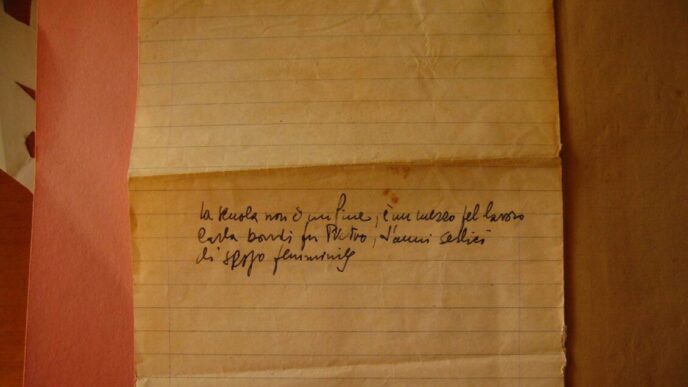 la scuola non è un fine, è un mezzo pel lavoro
Carla bondi fu Pietro, d'anni sedici
di sesso femminile